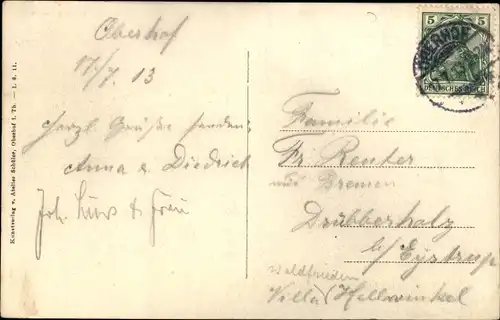 Oberhof
17/7 13
Herzl. Grüße senden
Anna u. Diedrich
Joh. & Frau
Kunstverlag v. Atelier Schlie, Oberhof i. Th. — I. 6. 11.
5 5
OBERHOF
DEUTSCHES REICH
Familie
Fr. Reuter
aus Bremen
Drübberholz
b/ Eystrup
Waldfrieden
Villa (Hellwinkel